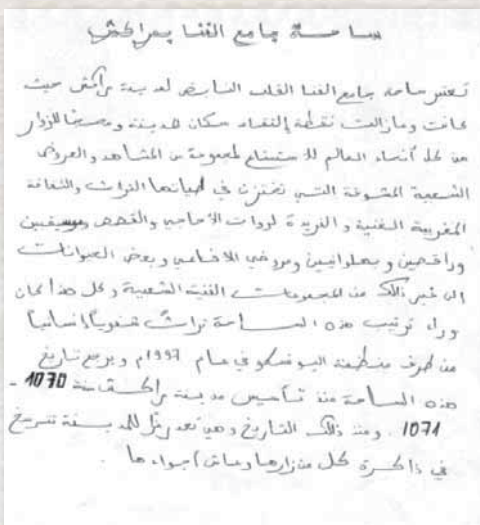 ساحة جامع الفنا بمراكش
تعتبر ساحة جامع الفنا القلب النابض لمدينة مراكش حيث
كانت ومازالت نقطة إلتقاء سكان المدينة و للزوار
من كل أنحاء العالم للاستمتاع لمجموعة من المشاهد والعروض
الشعبية المتنوعة التي تختزن في طياتها التراث والثقافة
المغربية الغنية و الفريدة لروات الأحاجي والقصص وموسيقيين
وراقصين و بهلوانيين ومروضي الافاعي وبعض الحيوانات
الى غير ذالك من المجموعات الفنية الشعبية وكل هذا كان
وراء ترتيب هذه الساحة تراثً شفوياً إنسانياً
من طرف منظمة اليونسكو في عام 1997م ويرجع تاريخ
هذه الساحة منذ تأسيس مدينة مراكش سنة 1070 -
1071. ومنذ ذالك التاريخ وهي تعد رمز للمدينة تترسخ
في ذاكرة كل من زارها وعاش اجواءها.